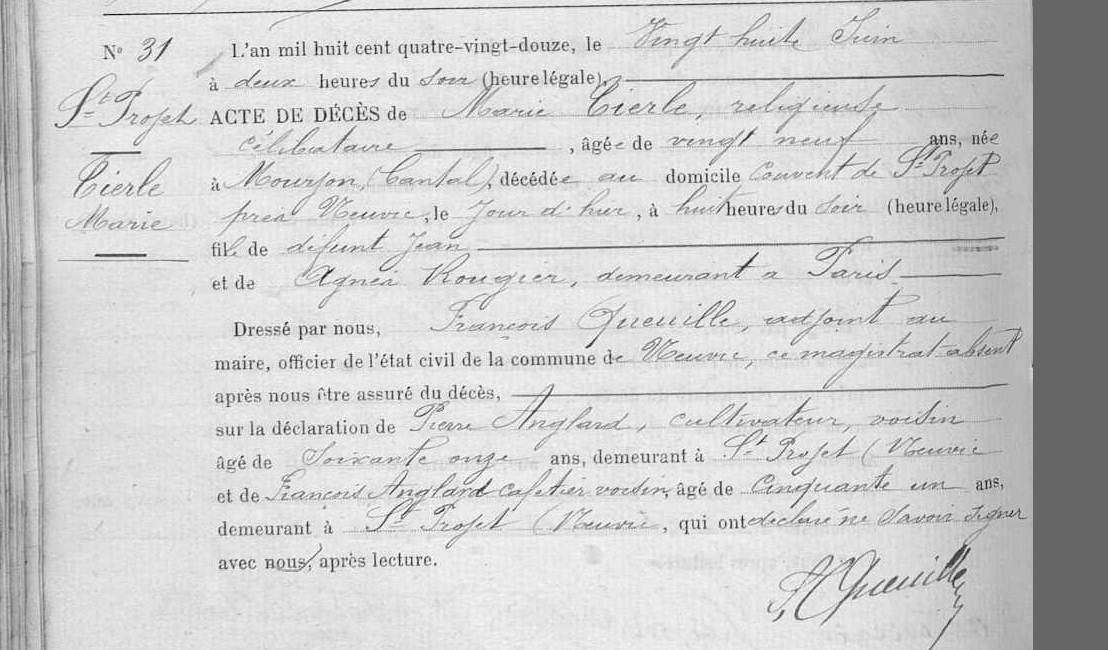 N° 31
L'an mil huit cent quatre-vingt-douze, le Vingt huit Juin
à deux heures du soir (heure légale),
St Projet
ACTE DE DÉCÈS de Marie Cierle, religieuse
célibataire , âgée de vingt neuf ans, née
Cierle
Marie
à Mourjou (Cantal), décédée au domicile Couvent de St Projet
près Neuvic, le Jour d'hier, à huit heures du soir (heure légale),
fille de défunt Jean
et de Agnès Rougier, demeurant à Paris
Dressé par nous, François Queuille, adjoint au
maire, officier de l'état civil de la commune de Neuvic, ce magistrat absent
après nous être assuré du décès,
sur la déclaration de Pierre Anglard, cultivateur, voisin
âgé de Soixante onze ans, demeurant à St Projet (Neuvic
et de François Anglard cafetier voisin, âgé de Cinquante un ans,
demeurant à St Projet (Neuvic, qui ont déclaré ne savoir signer
avec nous, après lecture.
Queuille